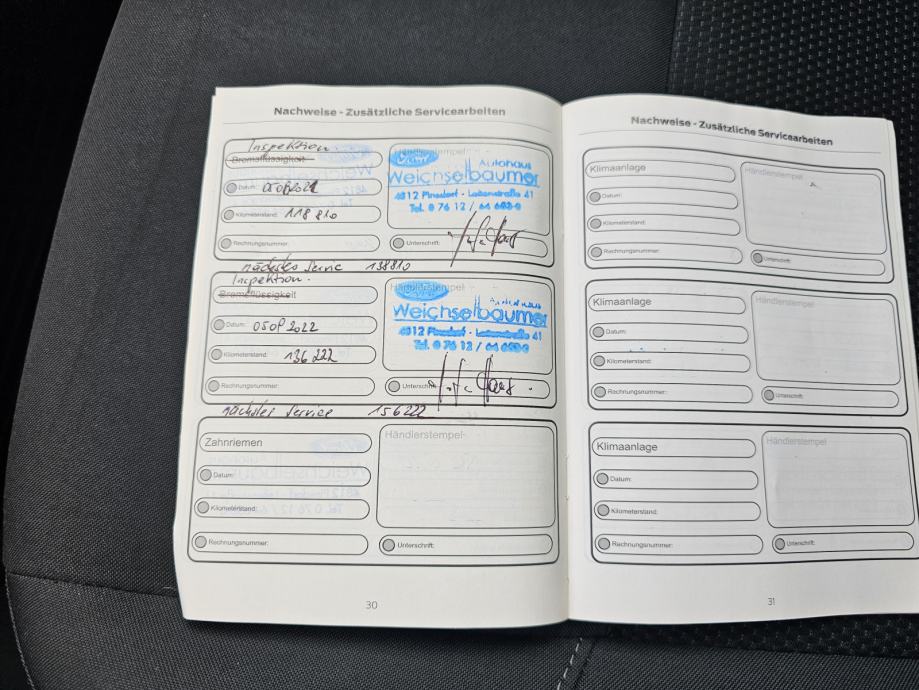 Nachweise - Zusätzliche Servicearbeiten
Inspektion.
Bremsflüssigkeit
Datum:
Kilometerstand: 118 810
Rechnungsnummer:
Händlerstempel
Ford
Autohaus
Weichselbaumer
4812 Pinsdorf - Leitenstraße 41
Tel. 0 76 12 /
Unterschrift:
nächstes Service 138810
Inspektion.
Bremsflüssigkeit
Datum: 2022
Kilometerstand: 136 222
Rechnungsnummer:
Händlerstempel
Ford
Autohaus
Weichselbaumer
4812 Pinsdorf - Leitenstraße 41
Tel. 0 76 12 /
Unterschrift:
nächstes Service 156222
Zahnriemen
Datum:
Kilometerstand:
Rechnungsnummer:
Händlerstempel
Unterschrift:
30
Nachweise - Zusätzliche Servicearbeiten
Klimaanlage
Datum:
Kilometerstand:
Rechnungsnummer:
Händlerstempel
Unterschrift:
Klimaanlage
Datum:
Kilometerstand:
Rechnungsnummer:
Händlerstempel
Unterschrift:
Klimaanlage
Datum:
Kilometerstand:
Rechnungsnummer:
Händlerstempel
Unterschrift:
31